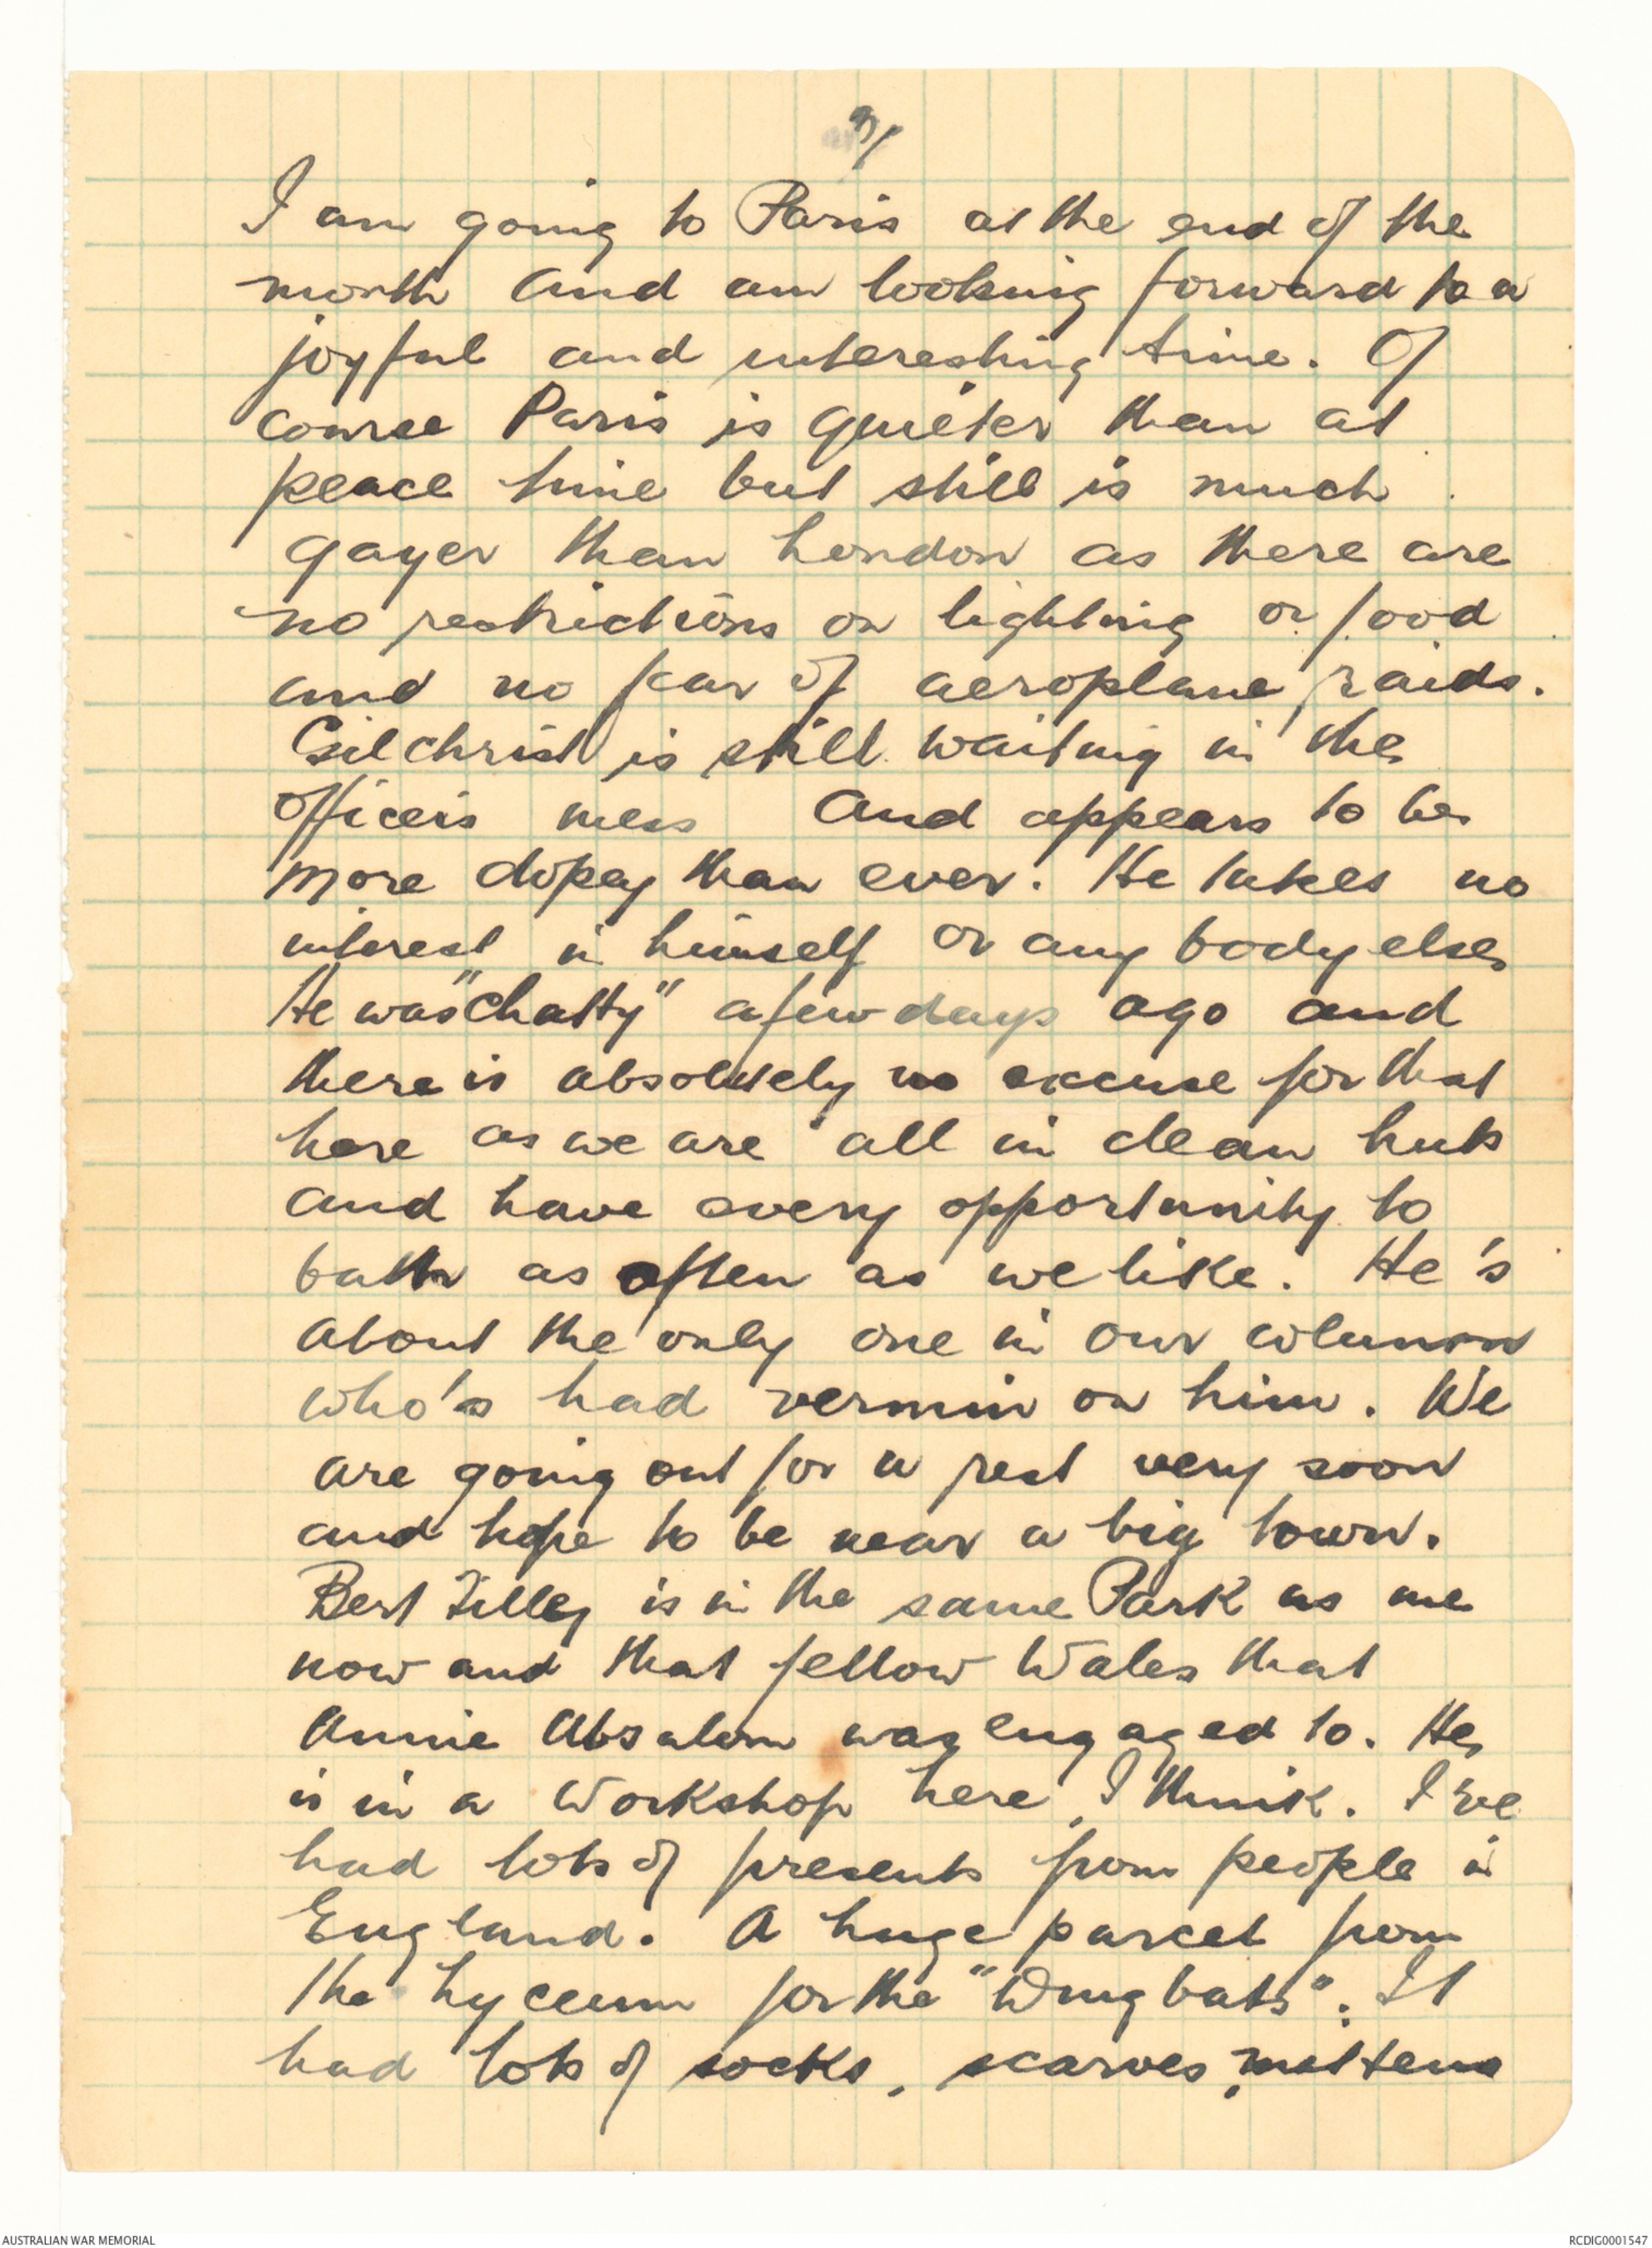 3/
I am going to Paris at the end of the
month and am looking forward to a
joyful and interesting time. Of
course Paris is quieter than at
peace time but still is much
gayer than London as there are
no restrictions on lighting or food
and no fear of aeroplane raids.
Gilchrist is still waiting in the
officers mess and appears to be
more dopey than ever. He takes no
interest in himself or any body else
He was "Chatty" a few days ago and
there is absolutely no excuse for that
here as we are all in clean huts
and have every opportunity to
bath as often as we like. He's
about the only one in our column
who's had vermin on him. We
are going out for a rest very soon
and hope to be near a big town.
Bert Tilley is in the same Park as me
now and that fellow Wales that
Annie Absalom was engaged to. He
is in a Workshop here, I think. I've
had lots of presents from people in
England. A huge parcel from
the Lyceum for the "Dingbats". It
had lots of socks, scarves, mittens
AUSTRALIAN WAR MEMORIAL
RCDIG0001547